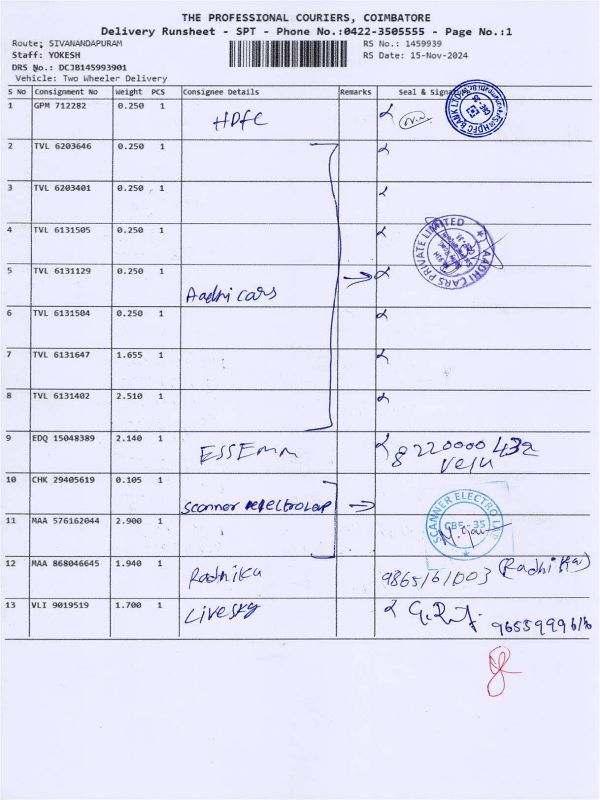 THE PROFESSIONAL COURIERS, COIMBATORE
Delivery Runsheet - SPT - Phone No.:0422-3505555 - Page No.:1
Route: SIVANANDAPURAM RS No.: 1459939
Staff: YOKESH RS Date: 15-Nov-2024
DRS No.: DCJB145993901
Vehicle: Two Wheeler Delivery
S No Consignment No Weight PCS Consignee Details Remarks Seal &
1 GPM 712282 0.250 1 HDFC
2 TVL 6203646 0.250 1
3 TVL 6203401 0.250 1
4 TVL 6131505 0.250 1
AADHI CARS PRIVATE LIMITED
5 TVL 6131129 0.250 1
Aadhi cars
6 TVL 6131504 0.250 1
7 TVL 6131647 1.655 1
8 TVL 6131402 2.510 1
9 EDQ 15048389 2.140 1 ESSEmm 8220000432
Velu
10 CHK 29405619 0.105 1
Scanner
SCANNER ELECTRO
CBE-35
11 MAA 576162044 2.900 1
12 MAA 868046645 1.940 1 Radhika 9865161003 (Radhika)
13 VLI 9019519 1.700 1 Livesky